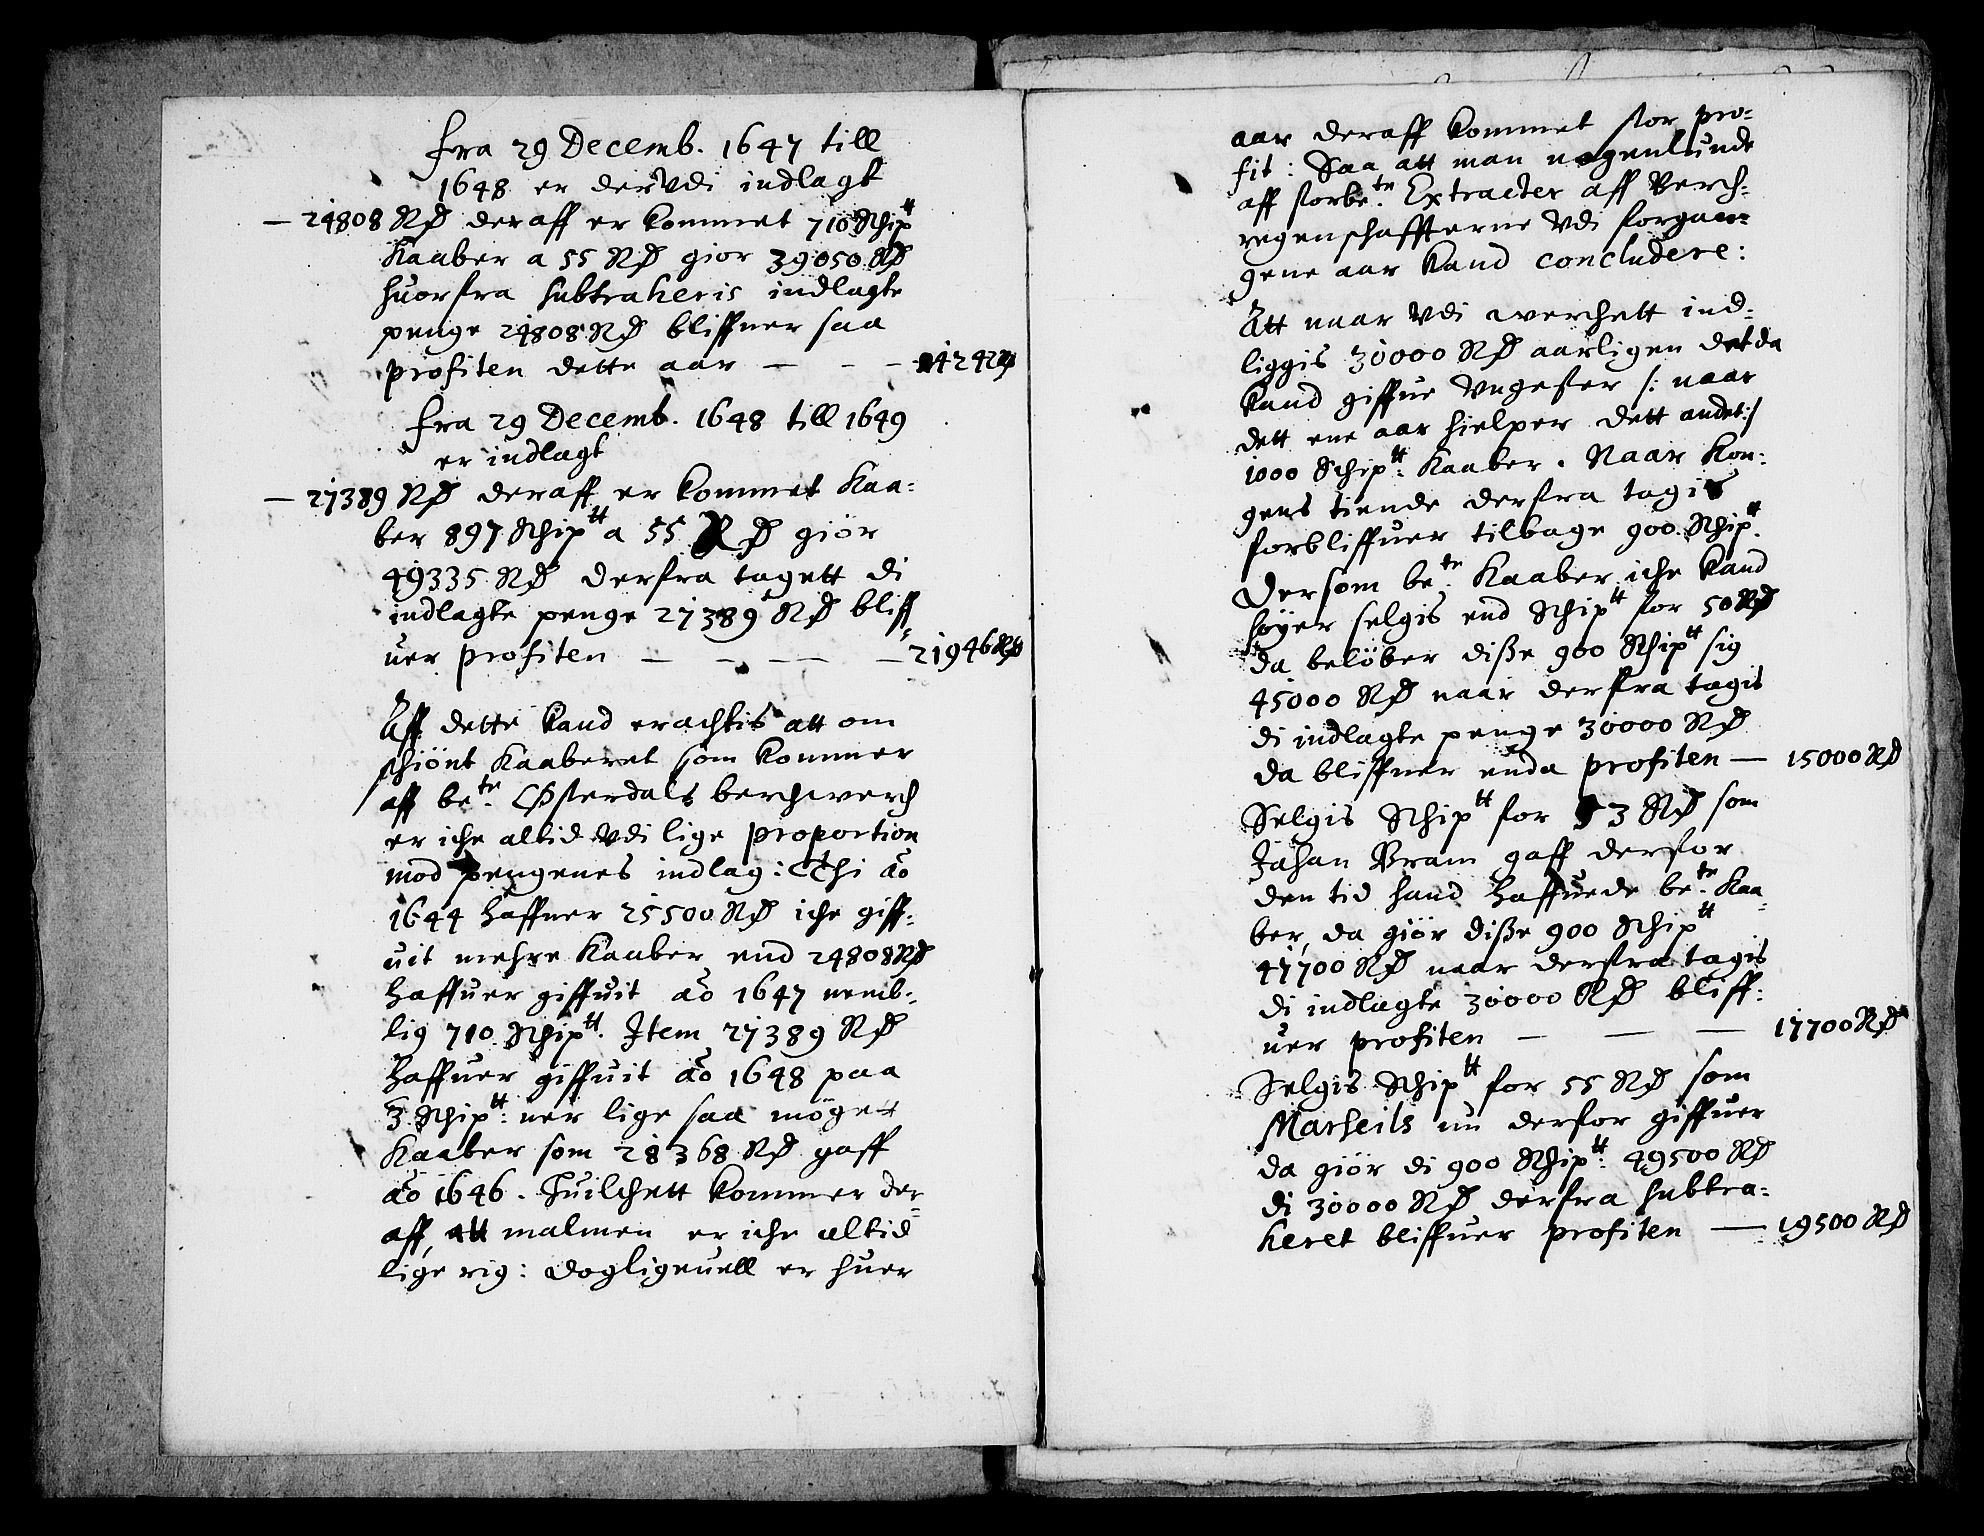 fra 29 Decemb. 1647 till
1648 er derVdi indlagt
— 24808 RD deraff er kommet 710 Schip tt
Kaaber a 55 RD giör 39050 RD
huorfra subtraheris indlagte
penge 24808 RD bliffuer saa
profiten dette aar — - - 14242
fra 29 Decemb. 1648 till 1649
er indlagt
— 27389 RD deraff er kommet Kaa:
ber 897 Schip tt a 55 RD giör
49335 RD derfra tagett di
indlagte penge 27389 RD bliff
uer profiten — - — — 21946 RD
Aff dette kand erachtis att om
schiönt Kaaberet som kommer
aff be.te Østerdals berchwerch
er iche altid Vdi lige proportion
mod pengenes indlag: Thi ao
1644 haffuer 25500 RD iche giff:
uit mehre Kaaber end 24808 RD
haffuer giffuit ao 1647 nemb:
lig 710 Schip tt. Item 27389 RD
haffuer giffuit ao 1648 paa
3 Schip tt: ner lige saa möget
Kaaber som 28368 RD gaff
ao 1646. Huilchett kommer der
aff, att malmen er iche altid
lige rig: dogligeuell er huer
aar deraff kommet stor pro-
fit: Saa att man nogenlunde
aff forbe.te Extracter aff Verch-
regenschaffterne Vdi forgan-
gene aar kand concludere:
Att naar Vdi werchett ind:
liggis 30000 RD aarligen det da
kand giffue Vngefer /: naar
dett ene aar hielper dett andet :/
1000 Schip tt: Kaaber. Naar Kon:
gens tiende derfra tagis
forbliffuer tilbage 900 Schip tt.
Dersom be.te Kaaber iche kand
höyer selgis end Schip tt for 50 RD
da belöber diße 900 Schip tt sig
45000 RD naar derfra tagis
di indlagte penge 30000 RD
da bliffuer enda profiten — 15000 RD
Selgis Schip tt for 53 RD som
Johan Bram gaff derfor
den tid hand haffuede be.te Kaa
ber, da giör diße 900 Schip tt
47700 RD naar derfra tagis
di indlagte 30000 RD bliff:
uer profiten — — — 17700 RD
Selgis Schip tt for 55 RD som
Marseils nu derfor giffuer
da giör di 900 Schip tt: 49500 RD
di 30000 RD derfra subtra:
heret bliffuer profiten — 19500 RD